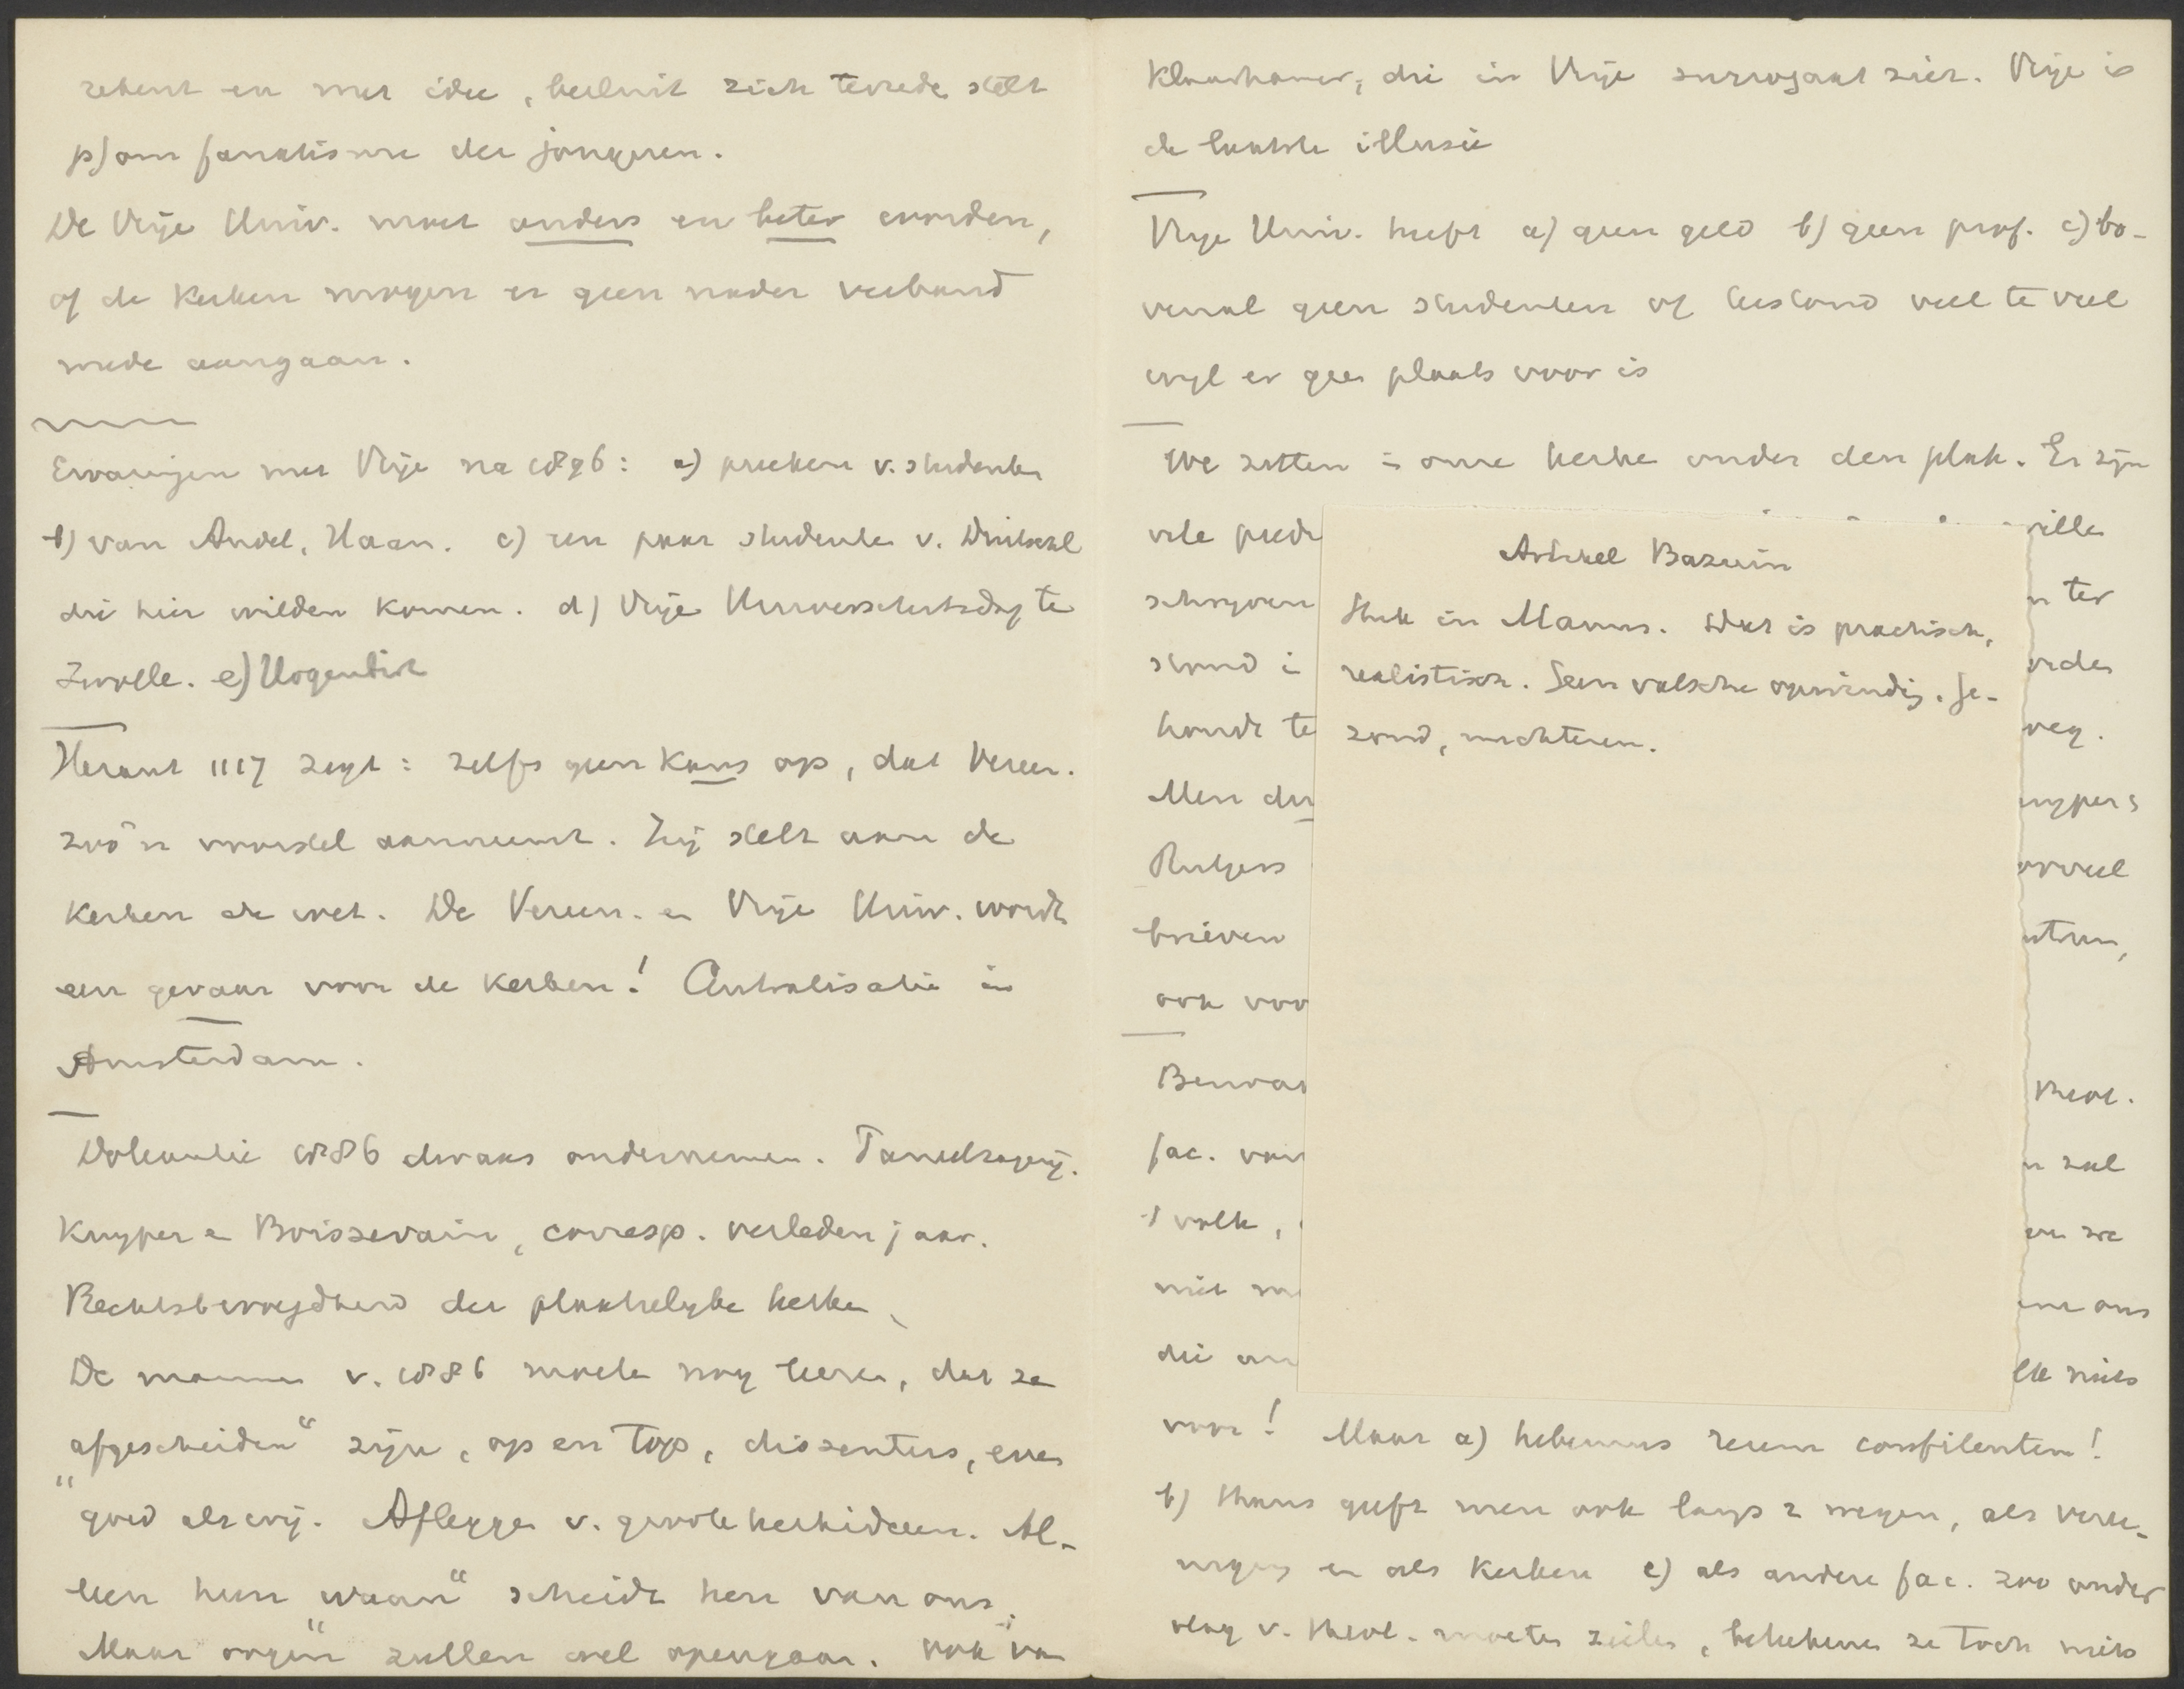 rekent en met idee, besluit zich tevrede stelt
p/om fanatisme der jongeren.
De Vrije Univ. moet anders en beter worden,
of de Kerken mogen er geen nader verband
mede aangaan.
Ervaringen met Vrije na 1896: a) preeken v. studenten
b) van Andel, Haan. c) een paar studenten v. Duitschl
die hier wilden komen. d) Vrije Universiteitsdag te
Zwolle. e) Hogenbirk
Heraut 1117 zegt: zelfs geen kans op, dat Vereen.
zoo'n voorstel aanneemt. Zij stelt aan de
Kerken de wet. De Vereen. en Vrije Univ. wordt
een gevaar voor de Kerken! Centralisatie in
Amsterdam.
Doleantie 1886 dwaas ondernemen.
Kuyper en Boissevain, corresp. verleden jaar.
Rechtsbevoegdheid der plaatselyke kerken
De mannen v. 1886 moeten nog leeren, dat ze
"afgescheiden" zijn, op en top, dissenters, even
goed als wij. Afleggen v. groote kerkideeen. Al-
leen hun "waan" scheidt hen van ons.
Maar oogen zullen wel opengaan. Ook van
Klaarhamer, die in Vrije surrogaat ziet. Vrije is
de laatste illusie
Vrije Univ. heeft a) geen geld b) geen prof. c) bo-
venal geen studenten of bestand veel te veel
wyl er geen plaats voor is
We zitten in onze kerken onder den plak. Er zyn
vele predi
wille
schryven
ter
stand i
houdt te
weg.
Men dur
uypers
Rutgers
orveel
brieven
ook voo
Bewar
Theol.
fac. van
zal
't volk,
we
niet
ons
die
niets
voor! Maar a) habemus reum confitentem!
b) thans geeft men ook langs 2 wegen, als veree-
nigng en als Kerken c) als andere fac. zoo onder
vlag v. theol. moeten zeilen, beteekenen ze toch niets
Artikel Bazuin
Stuk in Manus. Dat is practisch,
realistisch. Geen valsche opwinding. Ge-
zond, nuchteren.